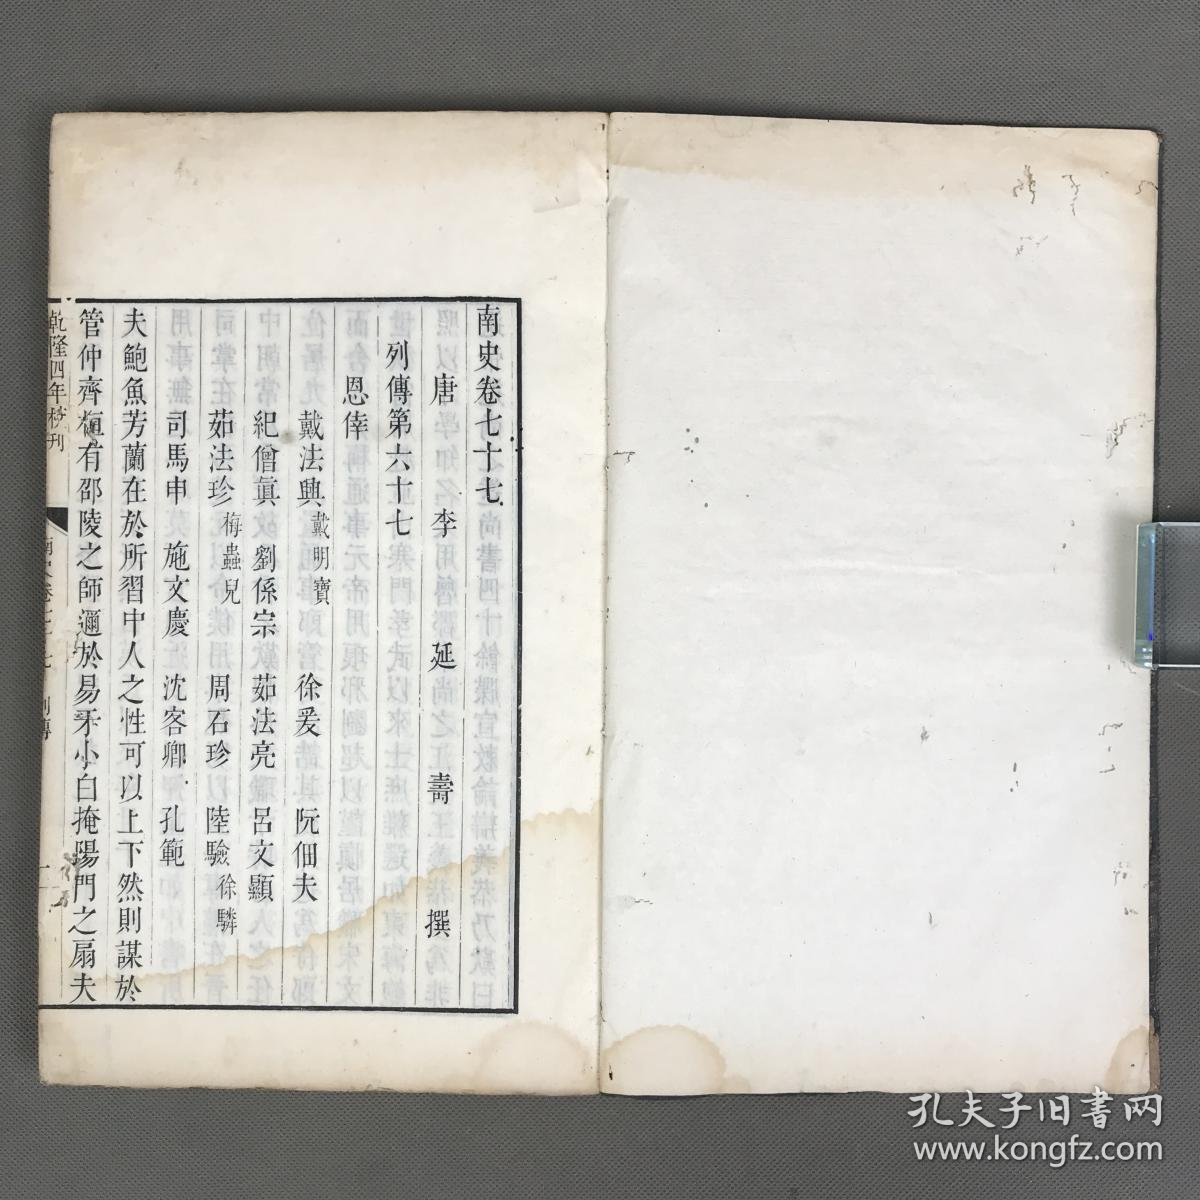 南史卷七十七
唐李延壽撰
列傳第六十七
恩倖
戴法興戴明寶徐爰阮佃夫
紀僧眞劉係宗茹法亮呂文顯
茹法珍梅蟲兒周石珍陸驗徐驎
司馬申施文慶沈客卿孔範
夫鮑魚芳蘭在於所習中人之性可以上下然則謀於
管仲齊桓有邵陵之師邇於易牙小白掩陽門之扇夫
乾隆四年校刊
南史卷七十七
列傳
一
孔夫子旧书网
www.kongfz.com